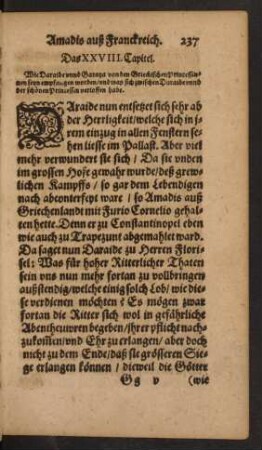 Amadis auß Franckreich. 237
Das XXVIII. Capitel.
Wie Daraide vnnd Garaya von den Griechischen Princessin-
nen seyn empfangen worden/vnd was sich zwischen Daraide vnnd
der schönen Princessen verloffen habe.
DAraide nun entsetzet sich sehr ab
der Herrligkeit/welche sich in j-
rem einzug in allen Fenstern se-
hen liesse im Pallast. Aber viel
mehr verwundert sie sich / Da sie vnden
im grossen Hofe gewahr wurde/deß grew-
lichen Kampffs / so gar dem Lebendigen
nach abconterfeyt ware / so Amadis auß
Griechenlandt mit Furio Cornelio gehal-
ten hette. Denn er zu Constantinopel eben
wie auch zu Trapezunt abgemahlet ward.
Da saget nun Daraide zu Herren Flori-
sel: Was für hoher Ritterlicher Thaten
sein vns nun mehr fortan zu vollbringen
außstendig/welche einig solch Lob/ wie die-
se verdienen möchten? Es mögen zwar
fortan die Ritter sich wol in gefährliche
Abentheuwren begeben/jhrer pflicht nach-
zukom̃en/vnd Ehr zu erlangen/ aber doch
nicht zu dem Ende/daß sie grösseren Sie-
ge erlangen können / dieweil die Götter
G g v (wie